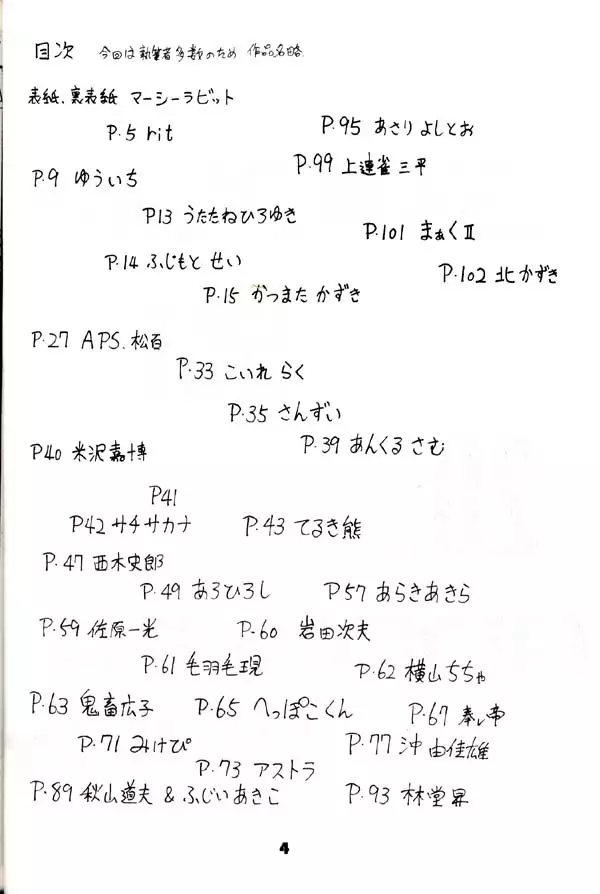 目次 今回は執筆者多数のため 作品名略
表紙、裏表紙 マーシーラビット
P.5 rit
P.95 あさり よしとお
P.99 上連雀 三平
P.9 ゆういち
P13 うたたねひろゆき
P.101 まぁくⅡ
P.14 ふじもと せい
P.102 北 かずき
P.15 かつまた かずき
P.27 APS.松百
P.33 こいれ らく
P.35 さんずい
P.39 あんくる さむ
P40 米沢嘉博
P41
P42 サチサカナ P.43 てるき熊
P.47 西木史郎
P.49 あろひろし P57 あらきあきら
P.59 佐原一光 P.60 岩田次夫
P.61 毛羽毛現 P.62 横山ちちゃ
P.63 鬼畜広子 P.65 へっぽこくん P.67
P.71 みけぴ P.77 沖 由佳雄
P.73 アストラ
P.89 秋山道夫 & ふじいあきこ P.93 林堂昇
4